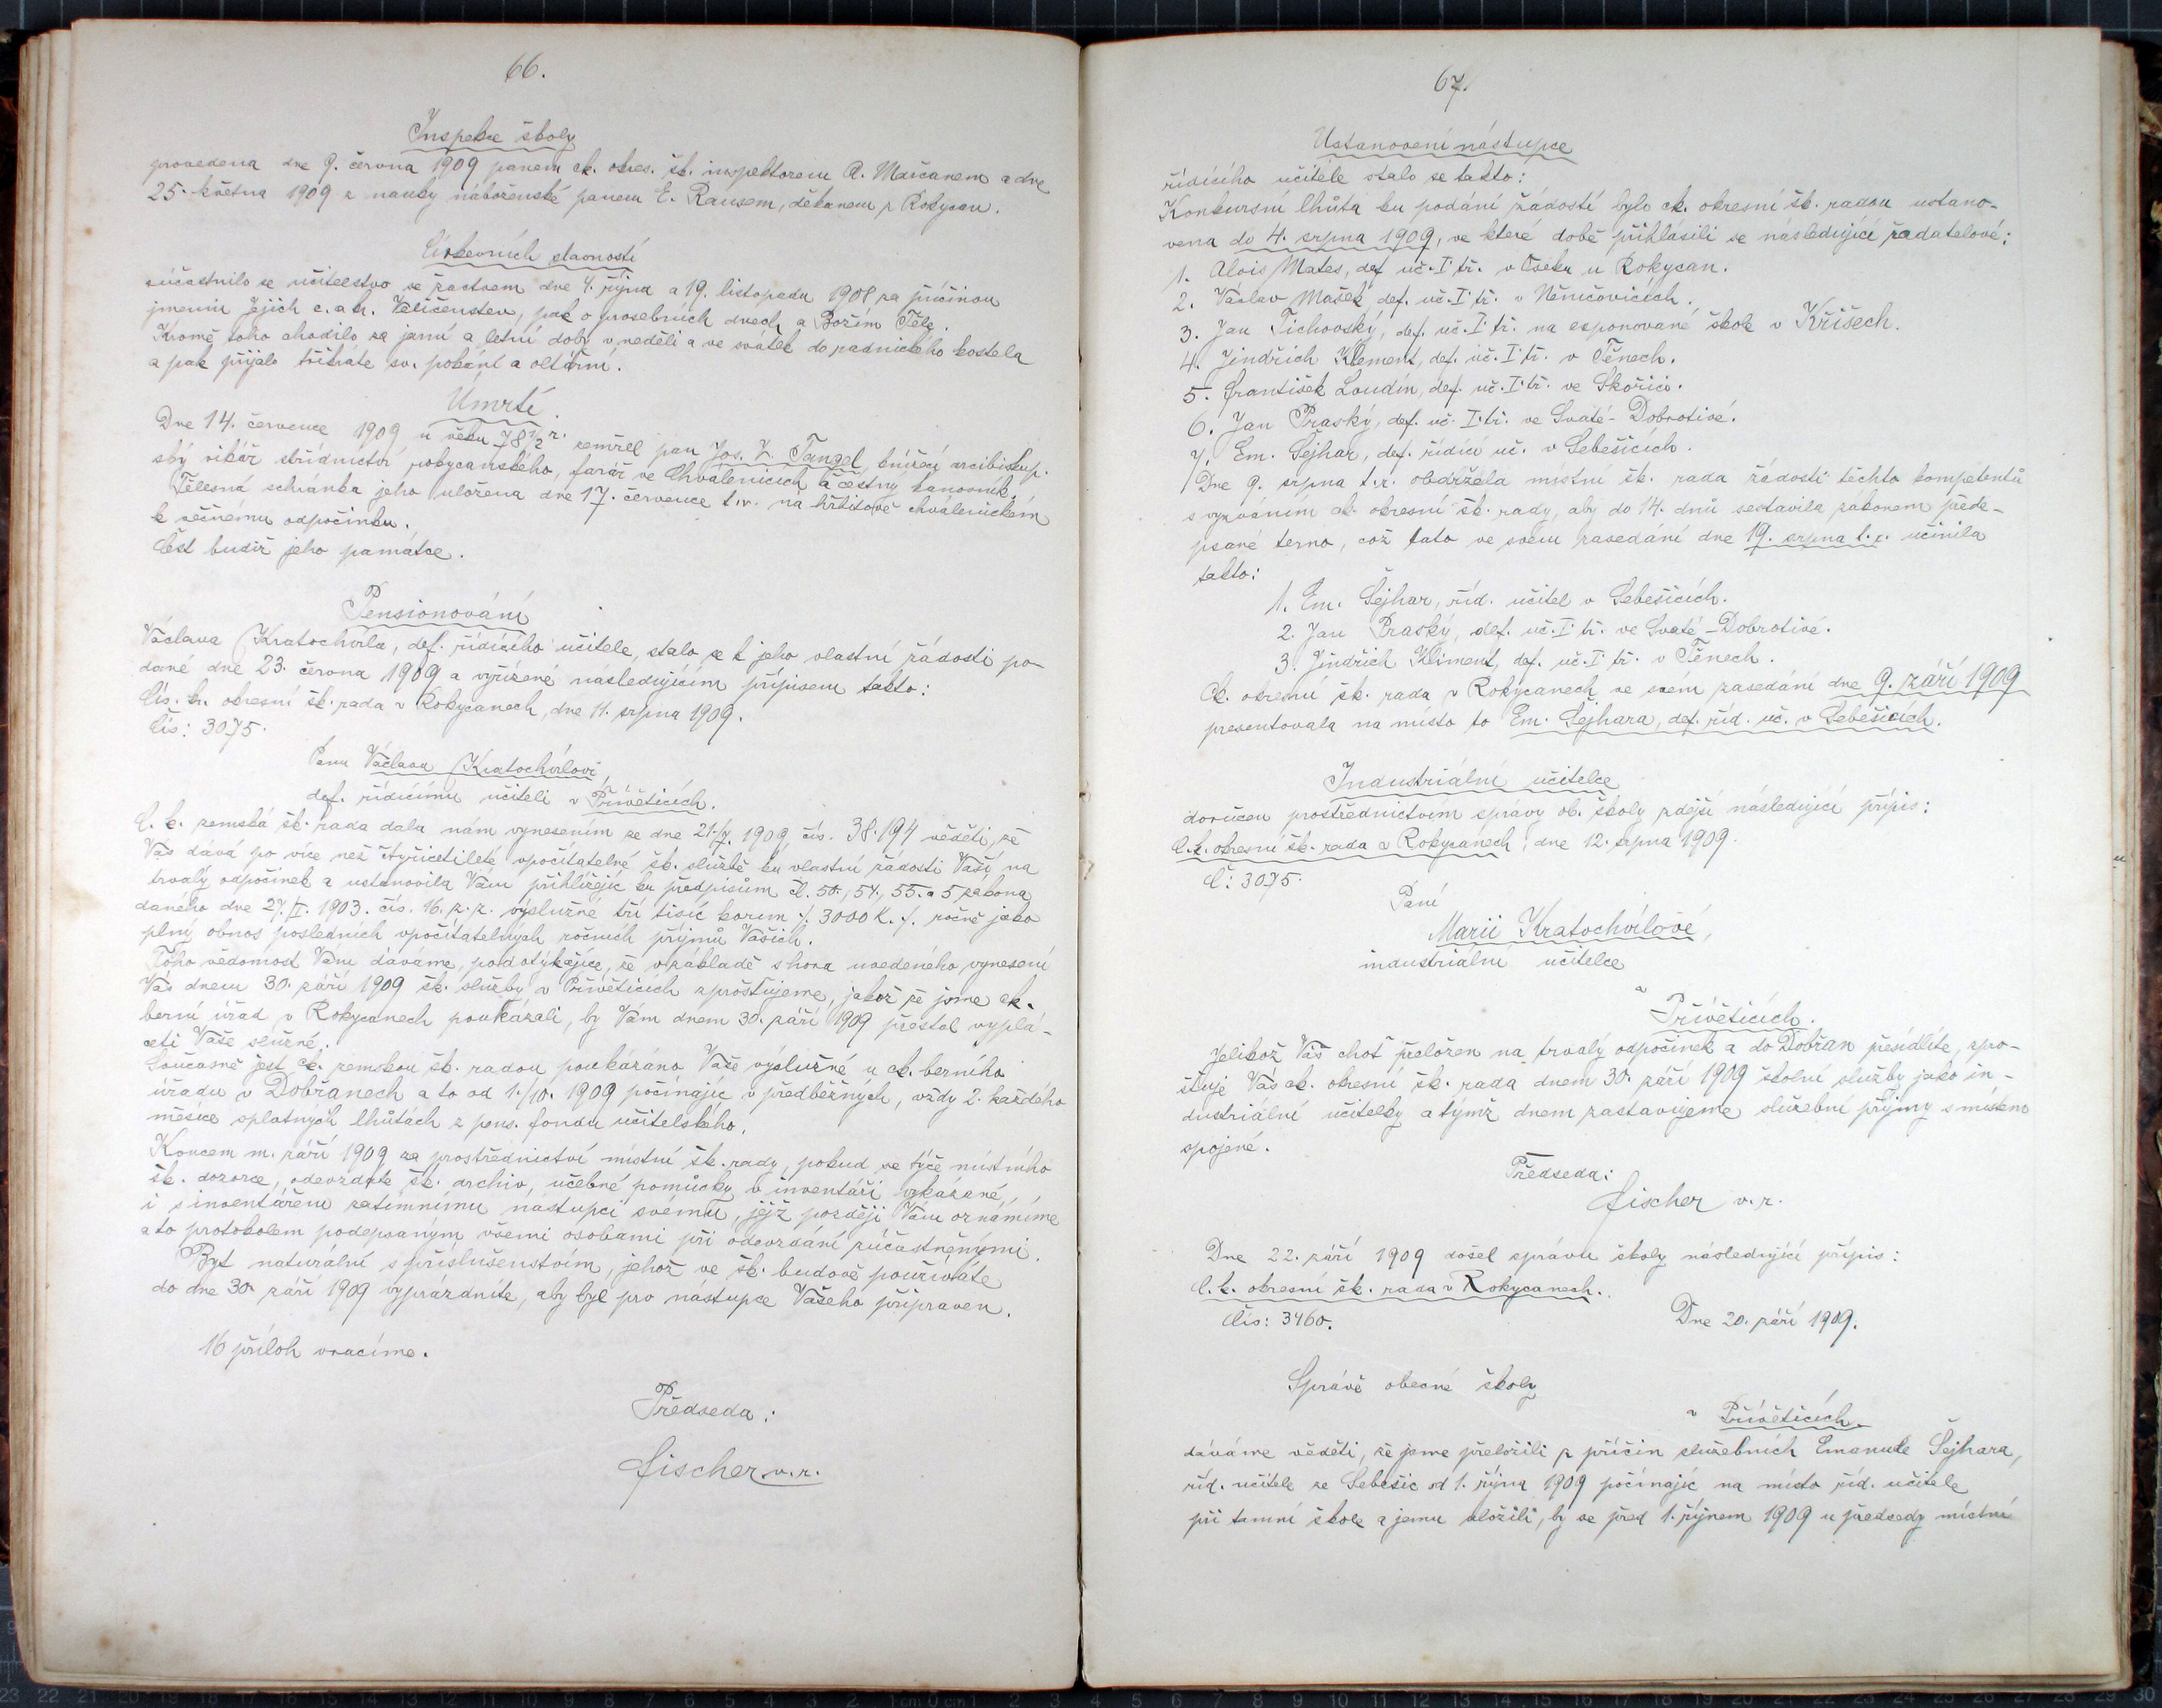 66.
Inspekce školy
provedena dne 9. června 1909 panem ck. okres. šk. inspektorem A. Marčanem a dne
25. května 1909 z nauky náboženské panem E. Rausem, děkanem z Rokycan.
Církevních slavností
súčastnilo se učitelstvo se žactvem dne 4. října a 19. listopadu 1908 za příčinou
jmenin Jejich c. a k. Veličenstev, pak o prosebních dnech a Božím Těle.
Kromě toho chodilo za jarní a letní doby v neděli a ve svátek do radnického kostela
a pak přijalo třikráte sv. pokání a oltářní.
Úmrtí.
Dne 14. července 1909 u věku 78 1/2 r. zemřel pan Jos. L. Tangel, kníž. arcibiskup-
ský vikář střídnictví rokycanského, farář ve Chválenicích a čestný kanovník.
Tělesná schránka jeho uložena dne 17. července t. r. na hřbitově chválenickém
k věčnému odpočinku.
Čest budiž jeho památce.
Pensionování
Václava Kratochvíla, def. řídícího učitele, stalo se k jeho vlastní žádosti po-
dané dne 23. června 1909 a vyřízené následujícím přípisem takto:
Cís. kr. okresní šk. rada v Rokycanech, dne 11. srpna 1909.
Čís: 3075.
Panu Václavu Kratochvílovi,
def. řídícímu učiteli v Přívěticích.
C. k. zemská šk. rada dala nám vynesením ze dne 21./7. 1909 čís. 38.194 věděti, že
Vás dává po více než čtyřicetileté vpočítatelné šk. službě ku vlastní žádosti Vaší na
trvalý odpočinek a ustanovila Vám přihlížejíc ku předpisům čl. 50., 54., 55. a 5 zákona
daného dne 27./I. 1903. čís. 16. z. z. výslužné tří tisíc korun ./. 3000 K. ./. ročně jako
plný obnos posledních vpočítatelných ročních příjmů Vašich.
Toho vědomost Vám dáváme, podotýkajíce, že v základě shora uvedeného vynesení
Vás dnem 30. září 1909 šk. služby v Přívěticích zprošťujeme, jakož že jsme ck.
berní úřad v Rokycanech poukázali, by Vám dnem 30. září 1909 přestal vyplá-
ceti Vaše služné.
Současně jest ck. zemskou šk. radou poukázáno Vaše výslužné u ck. berního
úřadu v Dobřanech a to od 1./10. 1909 počínajíc v předběžných, vždy 2. každého
měsíce splatných lhůtách z pens. fondu učitelského.
Koncem m. září 1909 za prostřednictví místní šk. rady, pokud se týče místního
šk. dozorce, odevzdáte šk. archiv, učebné pomůcky v inventáři vykázané,
i s inventářem zatímnímu nástupci svému, jejž později Vám oznámíme
a to protokolem podepsaným všemi osobami při odevzdání zúčastněnými.
Byt naturální s příslušenstvím, jehož ve šk. budově používáte
do dne 30. září 1909 vyprázdníte, aby byl pro nástupce Vašeho připraven.
16 příloh vracíme.
Předseda:
Fischer v. r.
67.
Ustanovení nástupce
řídícího učitele stalo se takto:
Konkursní lhůta ku podání žádostí bylo ck. okresní šk. radou ustano-
vena do 4. srpna 1909, ve které době přihlásili se následující žadatelové:
1. Alois Mates, def. uč. I. tř. v Oseku u Rokycan.
2. Václav Mašek def. uč. I. tř. v Němčovicích.
3. Jan Tichovský, def. uč. I. tř. na exponované škole v Křišech.
4. Jindřich Klement, def. uč. I. tř. v Těnech.
5. František Loudín, def. uč. I. tř. ve Skořici.
6. Jan Praský, def. uč. I. tř. ve Svaté-Dobrotivé.
7. Em. Šejhar, def. řídící uč. v Sebešicích.
Dne 9. srpna t. r. obdržela místní šk. rada žádosti těchto kompetentů
s vyzváním ck. okresní šk. rady, aby do 14. dnů sestavila zákonem přede-
psané terno, což tato ve svém zasedání dne 19. srpna t. r. učinila
takto:
1. Em. Šejhar, říd. učitel v Sebešicích.
2. Jan Praský, def. uč. I. tř. ve Svaté-Dobrotivé.
3. Jindřich Kliment, def. uč. I. tř. v Těnech.
Ck. okresní šk. rada v Rokycanech ve svém zasedání dne 9. září 1909
presentovala na místo to Em. Šejhara, def. říd. uč. v Sebešicích.
Industriální učitelce
doručen prostřednictvím správy ob. školy zdejší následující přípis:
C. k. okresní šk. rada v Rokycanech, dne 12. srpna 1909.
Č: 3075.
Paní
Marii Kratochvílové,
industriální učitelce
v
Přívěticích.
Jelikož Váš choť přeložen na trvalý odpočinek a do Dobřan přesídlíte, spro-
šťuje Vás ck. okresní šk. rada dnem 30. září 1909 školní služby jako in-
dustriální učitelky a týmž dnem zastavujeme služební příjmy s místem
spojené.
Předseda:
Fischer v. r.
Dne 22. září 1909 došel správu školy následující přípis:
C. k. okresní šk. rada v Rokycanech.
Čís: 3460.
Dne 20. září 1909.
Správě obecné školy
v Přívěticích.
dáváme věděti, že jsme přeložili z příčin služebních Emanuele Šejhara,
říd. učitele ze Sebešic od 1. října 1909 počínajíc na místo říd. učitele
při tamní škole a jemu uložili, by se před 1. říjnem 1909 u předsedy místní